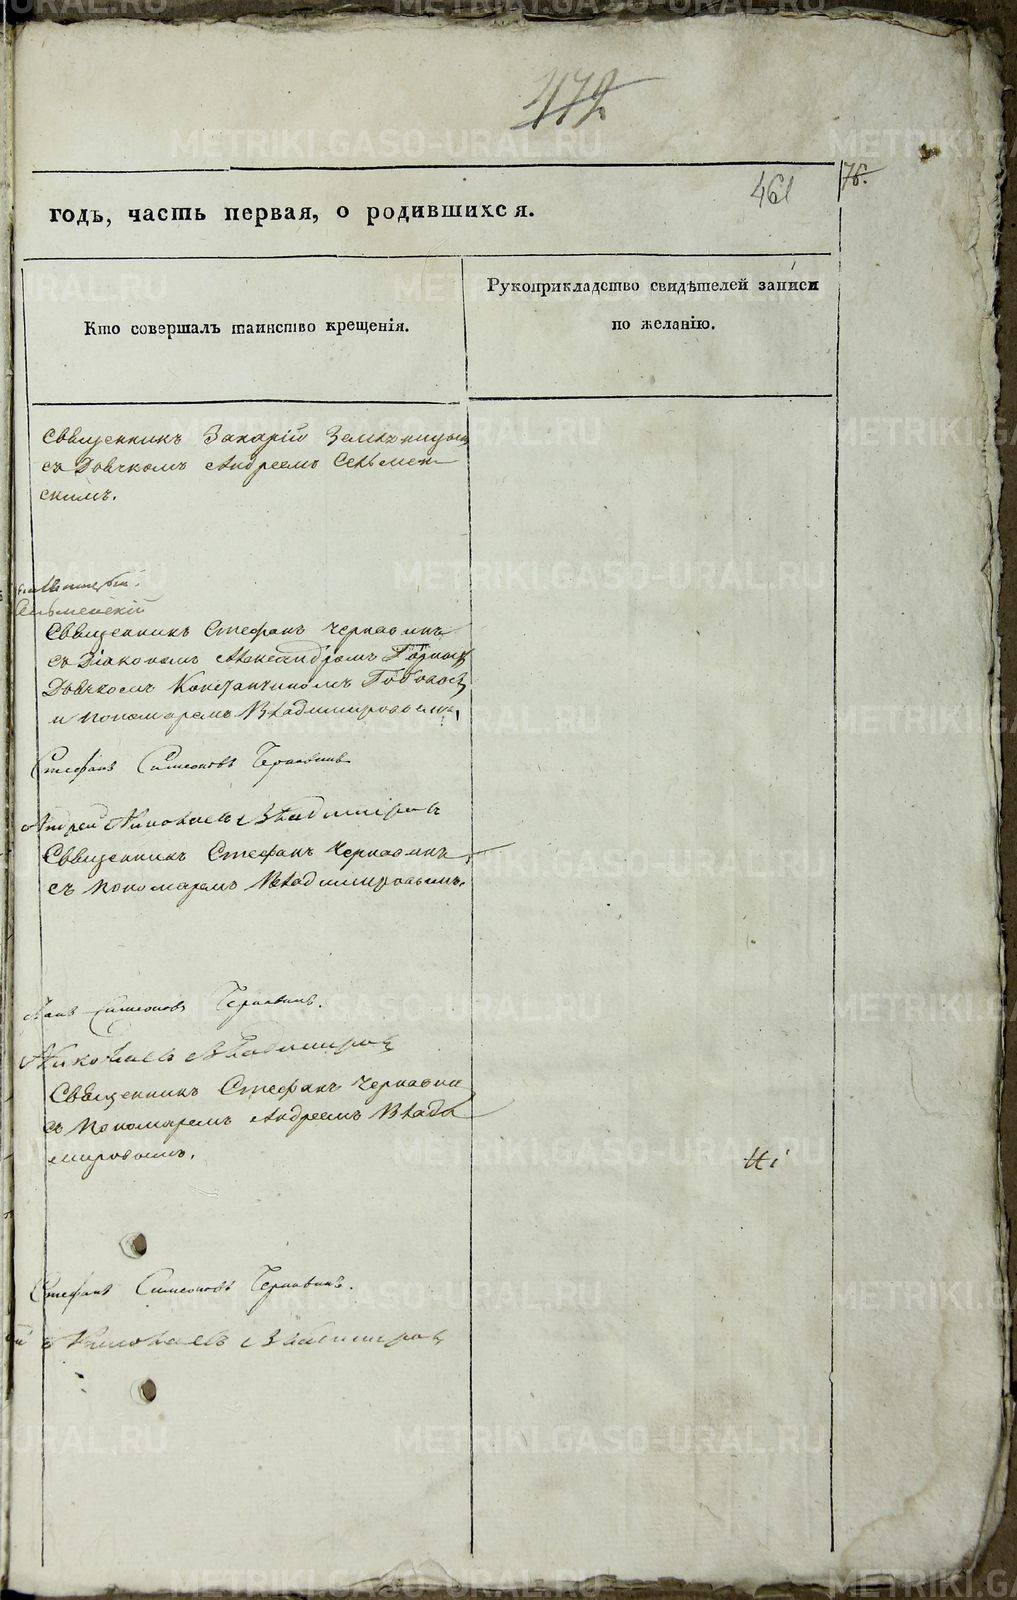 472
461
76.
годъ, часть первая, о родившихся.
Кто совершалъ таинство крещенія.
Рукоприкладство свидѣтелей записи
по желанію.
Священникъ Захарій
съ Дьячкомъ Андреемъ Сельмен-
скимъ.
Сельменскій
Священникъ Стефанъ Чернавинъ
съ Діакономъ Александромъ
Дьячкомъ Константиномъ
и пономаремъ Владимировымъ,
Стефанъ Симеоновъ Чернавинъ
Андрей Николаевъ Владимировъ
Священникъ Стефанъ Чернавинъ
съ пономаремъ Владимировымъ.
Симеоновъ Чернавинъ.
Николаевъ Владимировъ
Священникъ Стефанъ Чернавинъ
съ пономаремъ Андреемъ Влади
мировымъ.
Стефанъ Симеоновъ Чернавинъ.
Николаевъ Владимировъ
METRIKI.GASO-URAL.RU